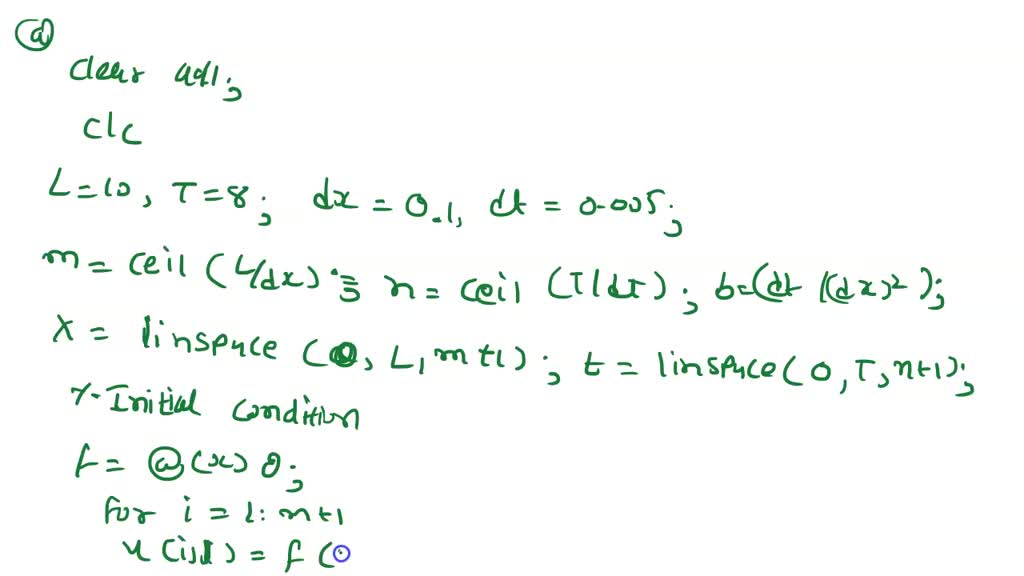 (a)
clear all;
clc
L=10, T=8; dx = 0.1, dt = 0.005;
m = ceil (L/dx); n = ceil (T/dt); b=(dt/(dx)²);
x = linspace (0, L, m+1); t = linspace(0, T, n+1);
%-Initial condition
f = @(x) 0;
for i = 1: m+1
u(i,1) = f (